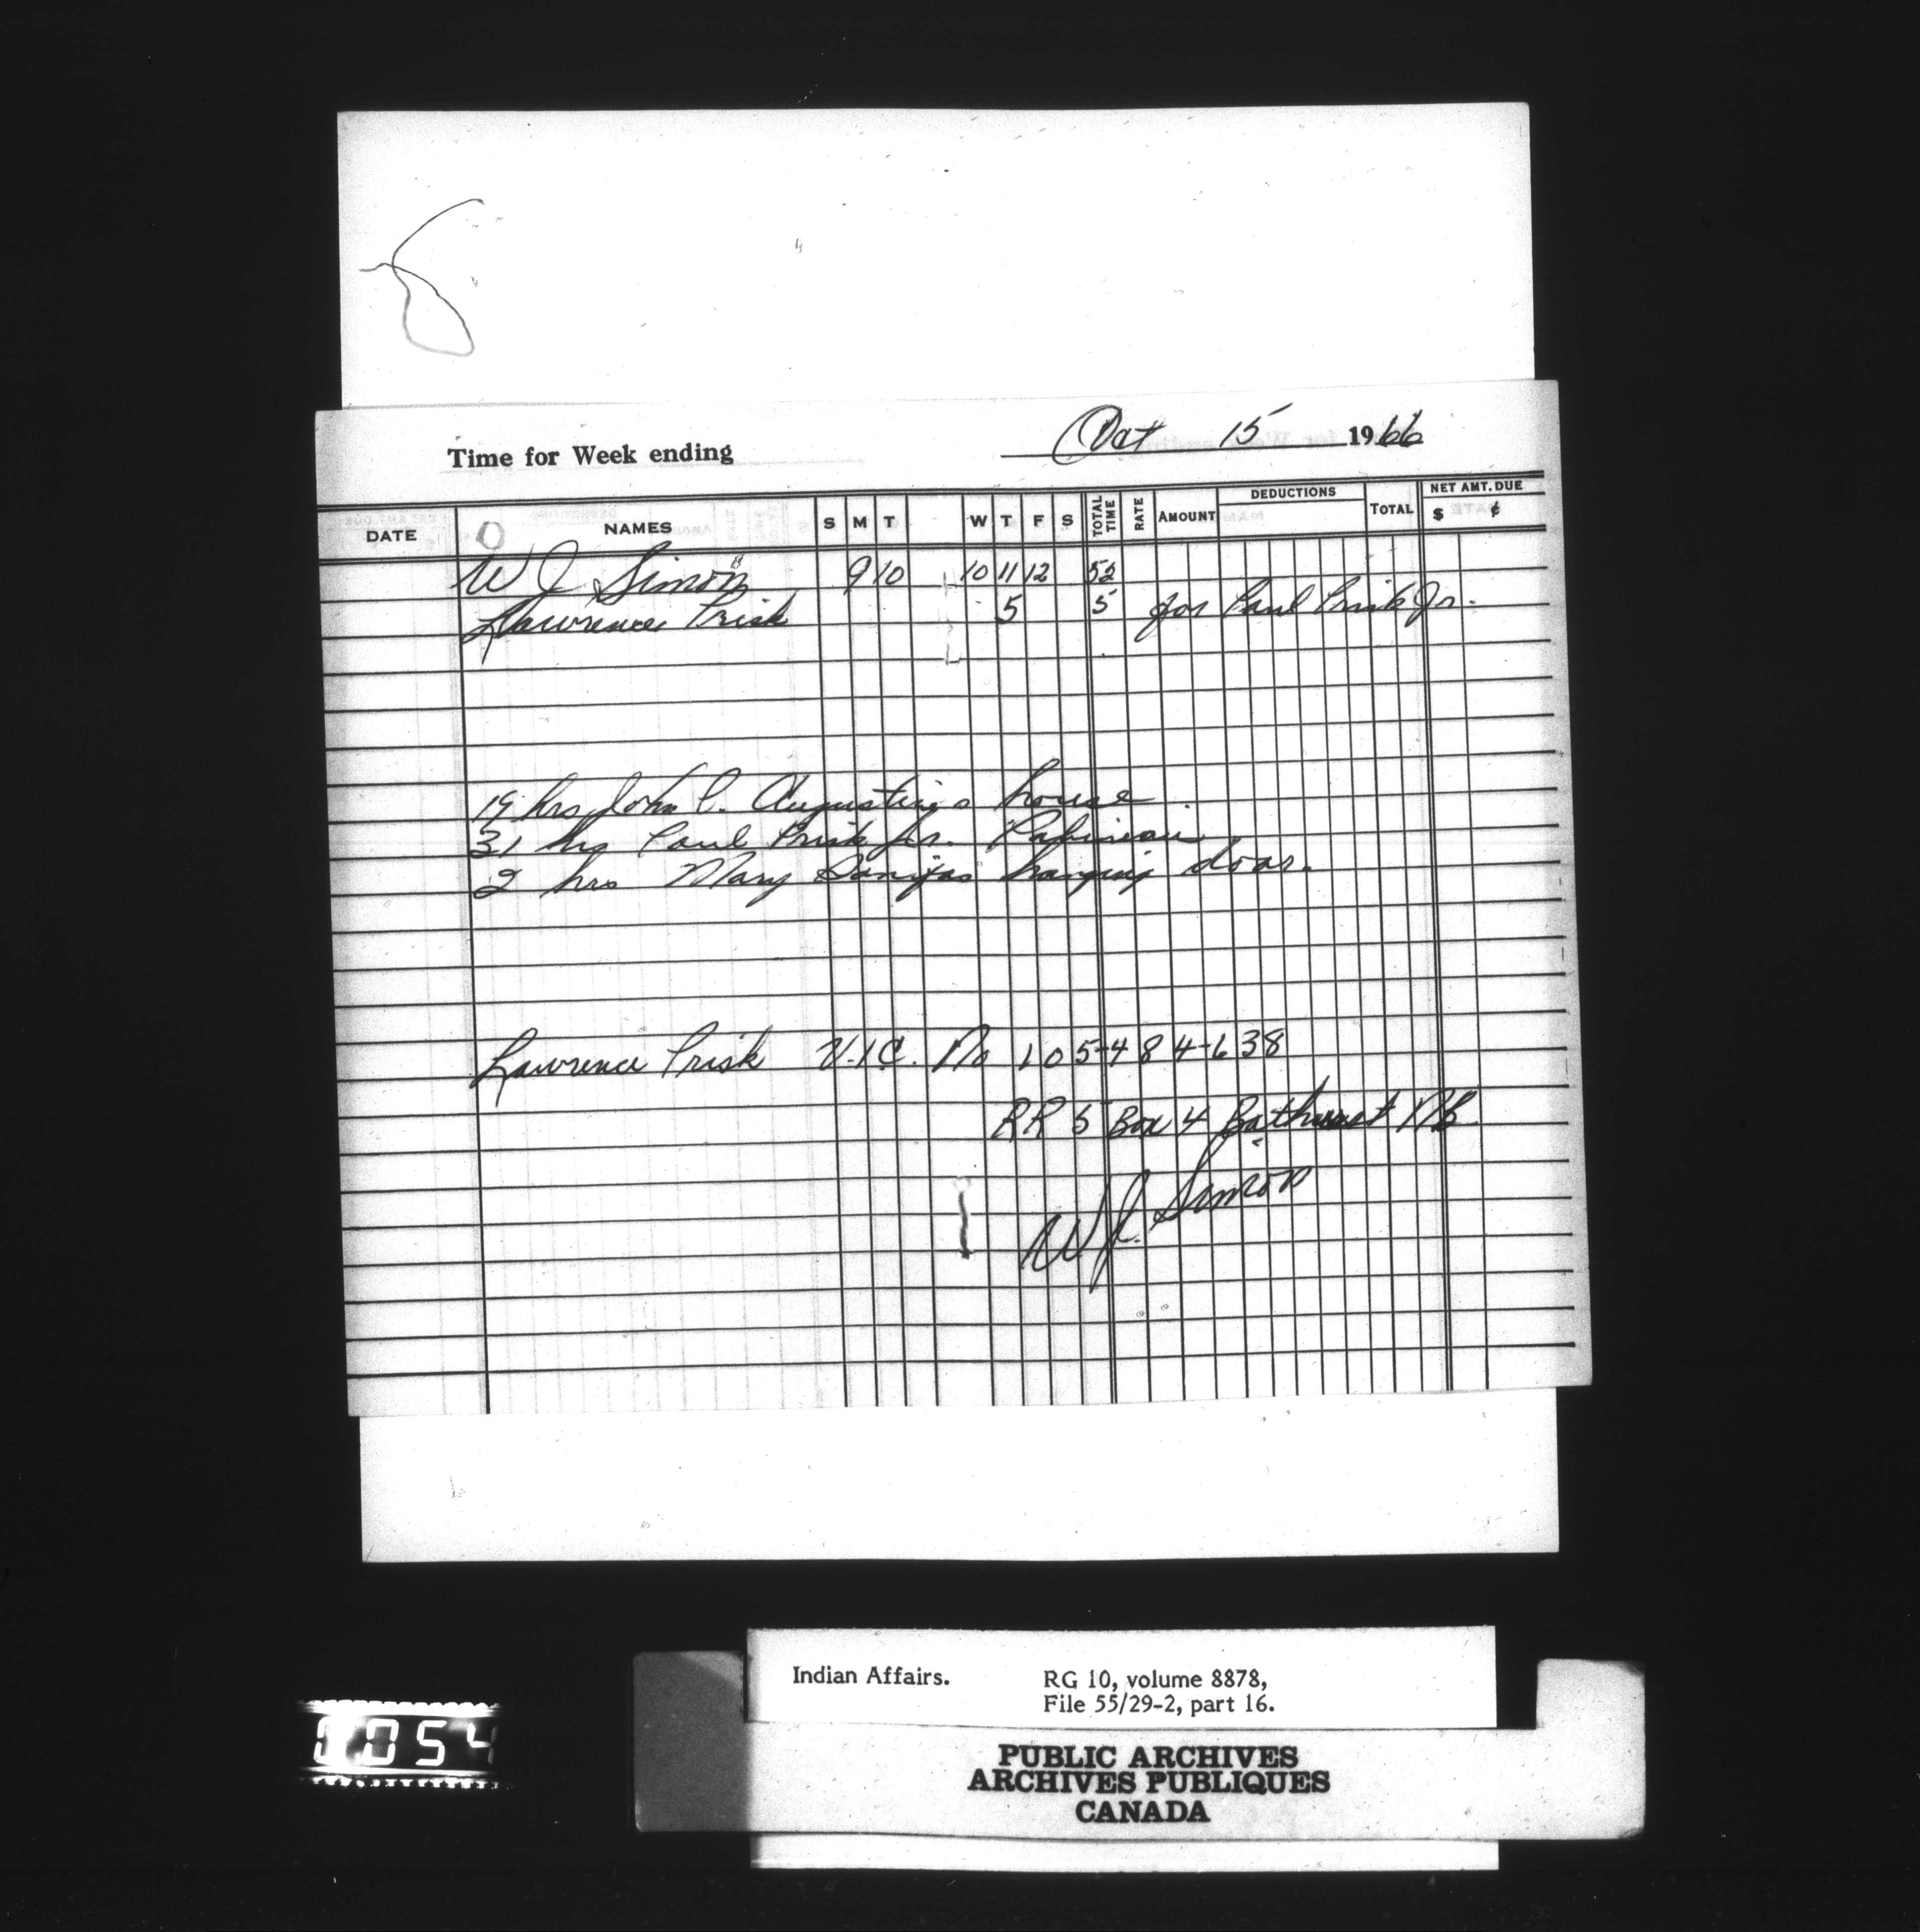 Time for Week ending Oct 15 1966
DATE NAMES S M T W T F S TOTAL TIME RATE AMOUNT DEDUCTIONS TOTAL NET AMT. DUE $ ¢
W J Simon 9 10 10 11 12 52
Lawrence Prisk 5 5 for Paul Prisk Jr.
19 hrs John P. Augustines house
31 hrs Paul Prisk Jr. Pabineau
2 hrs Mary hanging door.
Lawrence Prisk U.I.C. No 105-484-638
RR 5 Box 4 Bathurst NB
W J. Simon
Indian Affairs. RG 10, volume 8878,
File 55/29-2, part 16.
PUBLIC ARCHIVES
ARCHIVES PUBLIQUES
CANADA
0054